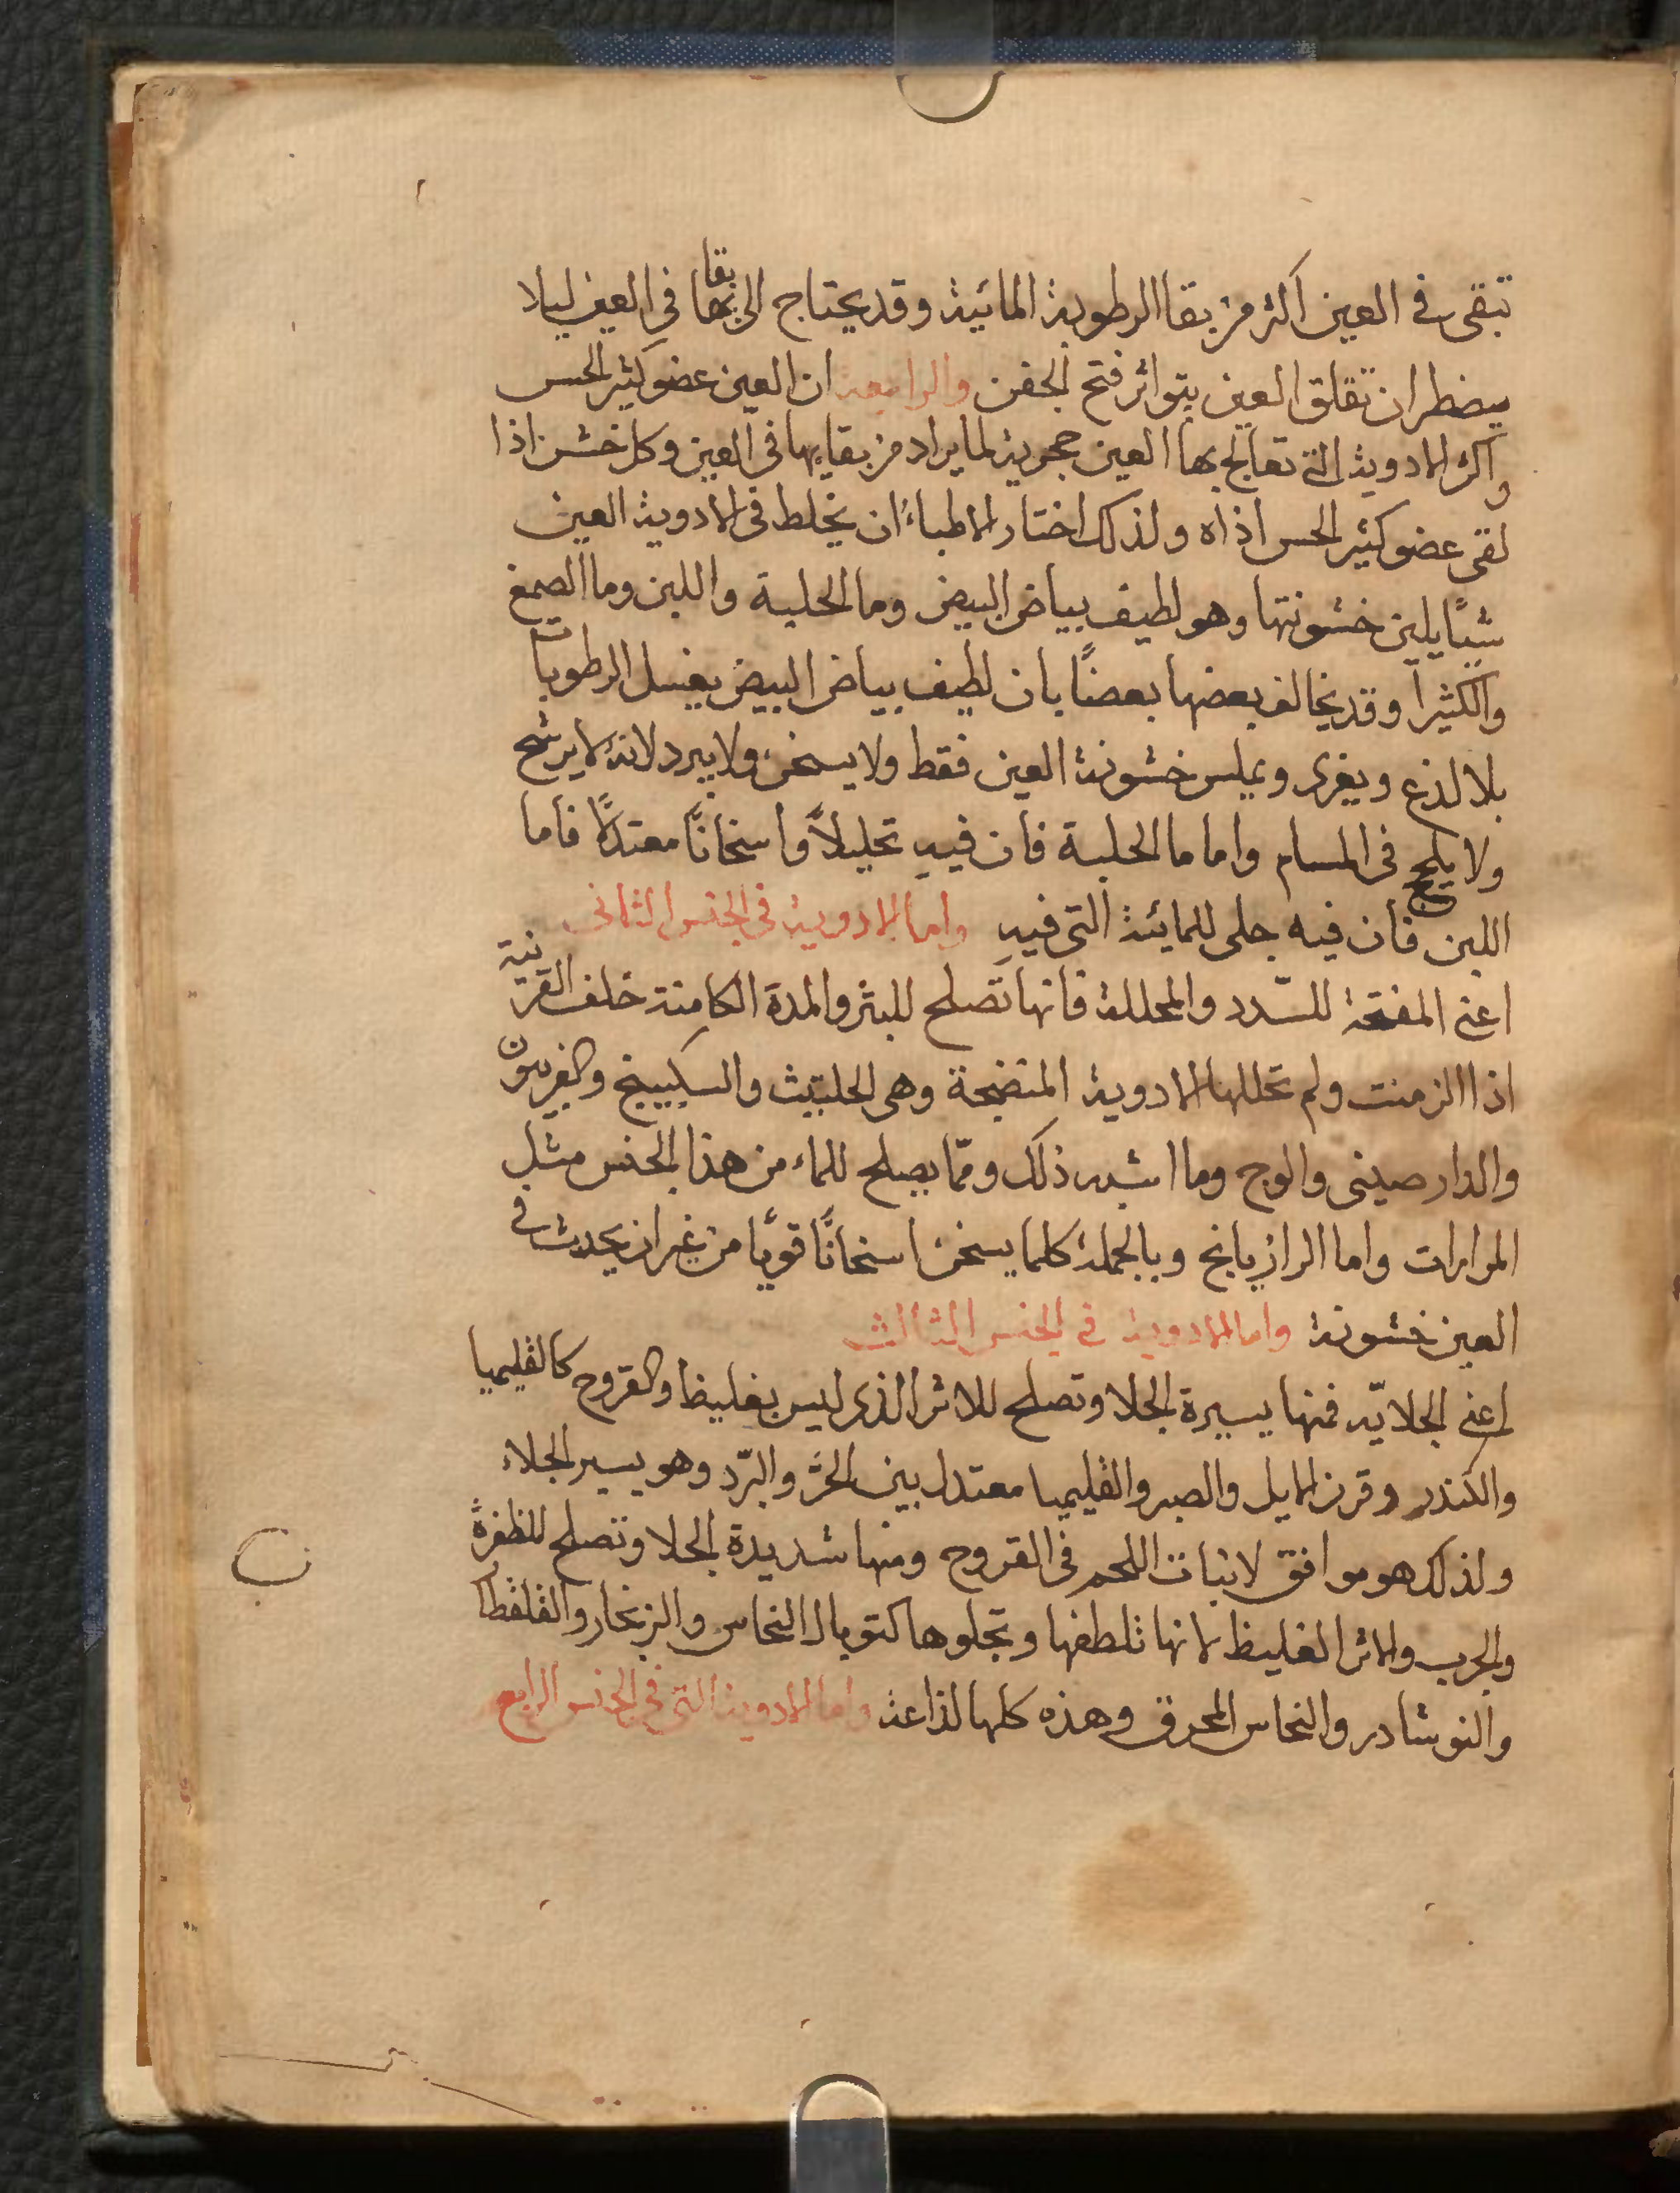 تبقى فى العين اكثر من بقا الرطوبة المائية وقد يحتاج الى بقاها فى العين ليلا
يضطر ان تقلق العين بتواتر فتح الجفن والرابعة ان العين عضو كثير الحس
واكثر الادوية التى تعالج بها العين حجرية لما يراد من بقايها فى العين وكل خشن اذا
لقى عضو كثير الحس اذاه ولذلك اختار الاطباء ان يخلط فى الادوية العين
شيًا يلين خشونتها وهو لطيف بياض البيض وما الحلبة واللبن وما الصمغ
والكثيرا وقد يخالف بعضها بعضًا بان لطيف بياض البيض يغسل الرطوبات
بلا لذع ويغرى ويملس خشونة العين فقط ولا يسخن ولا يبرد لانه لا يرشح
ولا يلحج فى المسام واما ما الحلبة فان فيه تحليلاً واسخانًا معتدلاً فاما
اللبن فان فيه جلى للمائية التى فيه واما الادوية فى الجنس الثانى
اعنى المفتحة للسّدد والمحللة فانها تصلح للبثر والمدة الكامنة خلف القرنية
اذا الزمنت ولم تحللها الادوية المنضجة وهى الحلتيث والسكبينج والفربيون
والدارصينى والوج وما اشبه ذلك وممّا يصلح للماء من هذا الجنس مثل
المرارات واما الرازيانج وبالجملة كلما يسخن اسخانًا قويًا من غير ان يحدث فى
العين خشونة واما الادوية فى الجنس الثالث
اعنى الجلايّه فمنها يسيرة الجلا وتصلح للاثر الذى ليس بغليظ والقروح كالقليميا
والكندر وقرن الايل والصبر والقليميا معتدل بين الحرّ والبرّد وهو يسير الجلاء
ولذلك هو موافق لانبات اللحم فى القروح ومنها شديدة الجلا وتصلح للظفرة
والجرب والاثر الغليظ لانها تلطفها وتجلوها كتوبال النحاس والزنجار والقلقطار
والنوشادر والنحاس المحرق وهذه كلها لذاعة واما الادوية التى فى الجنس الرابع